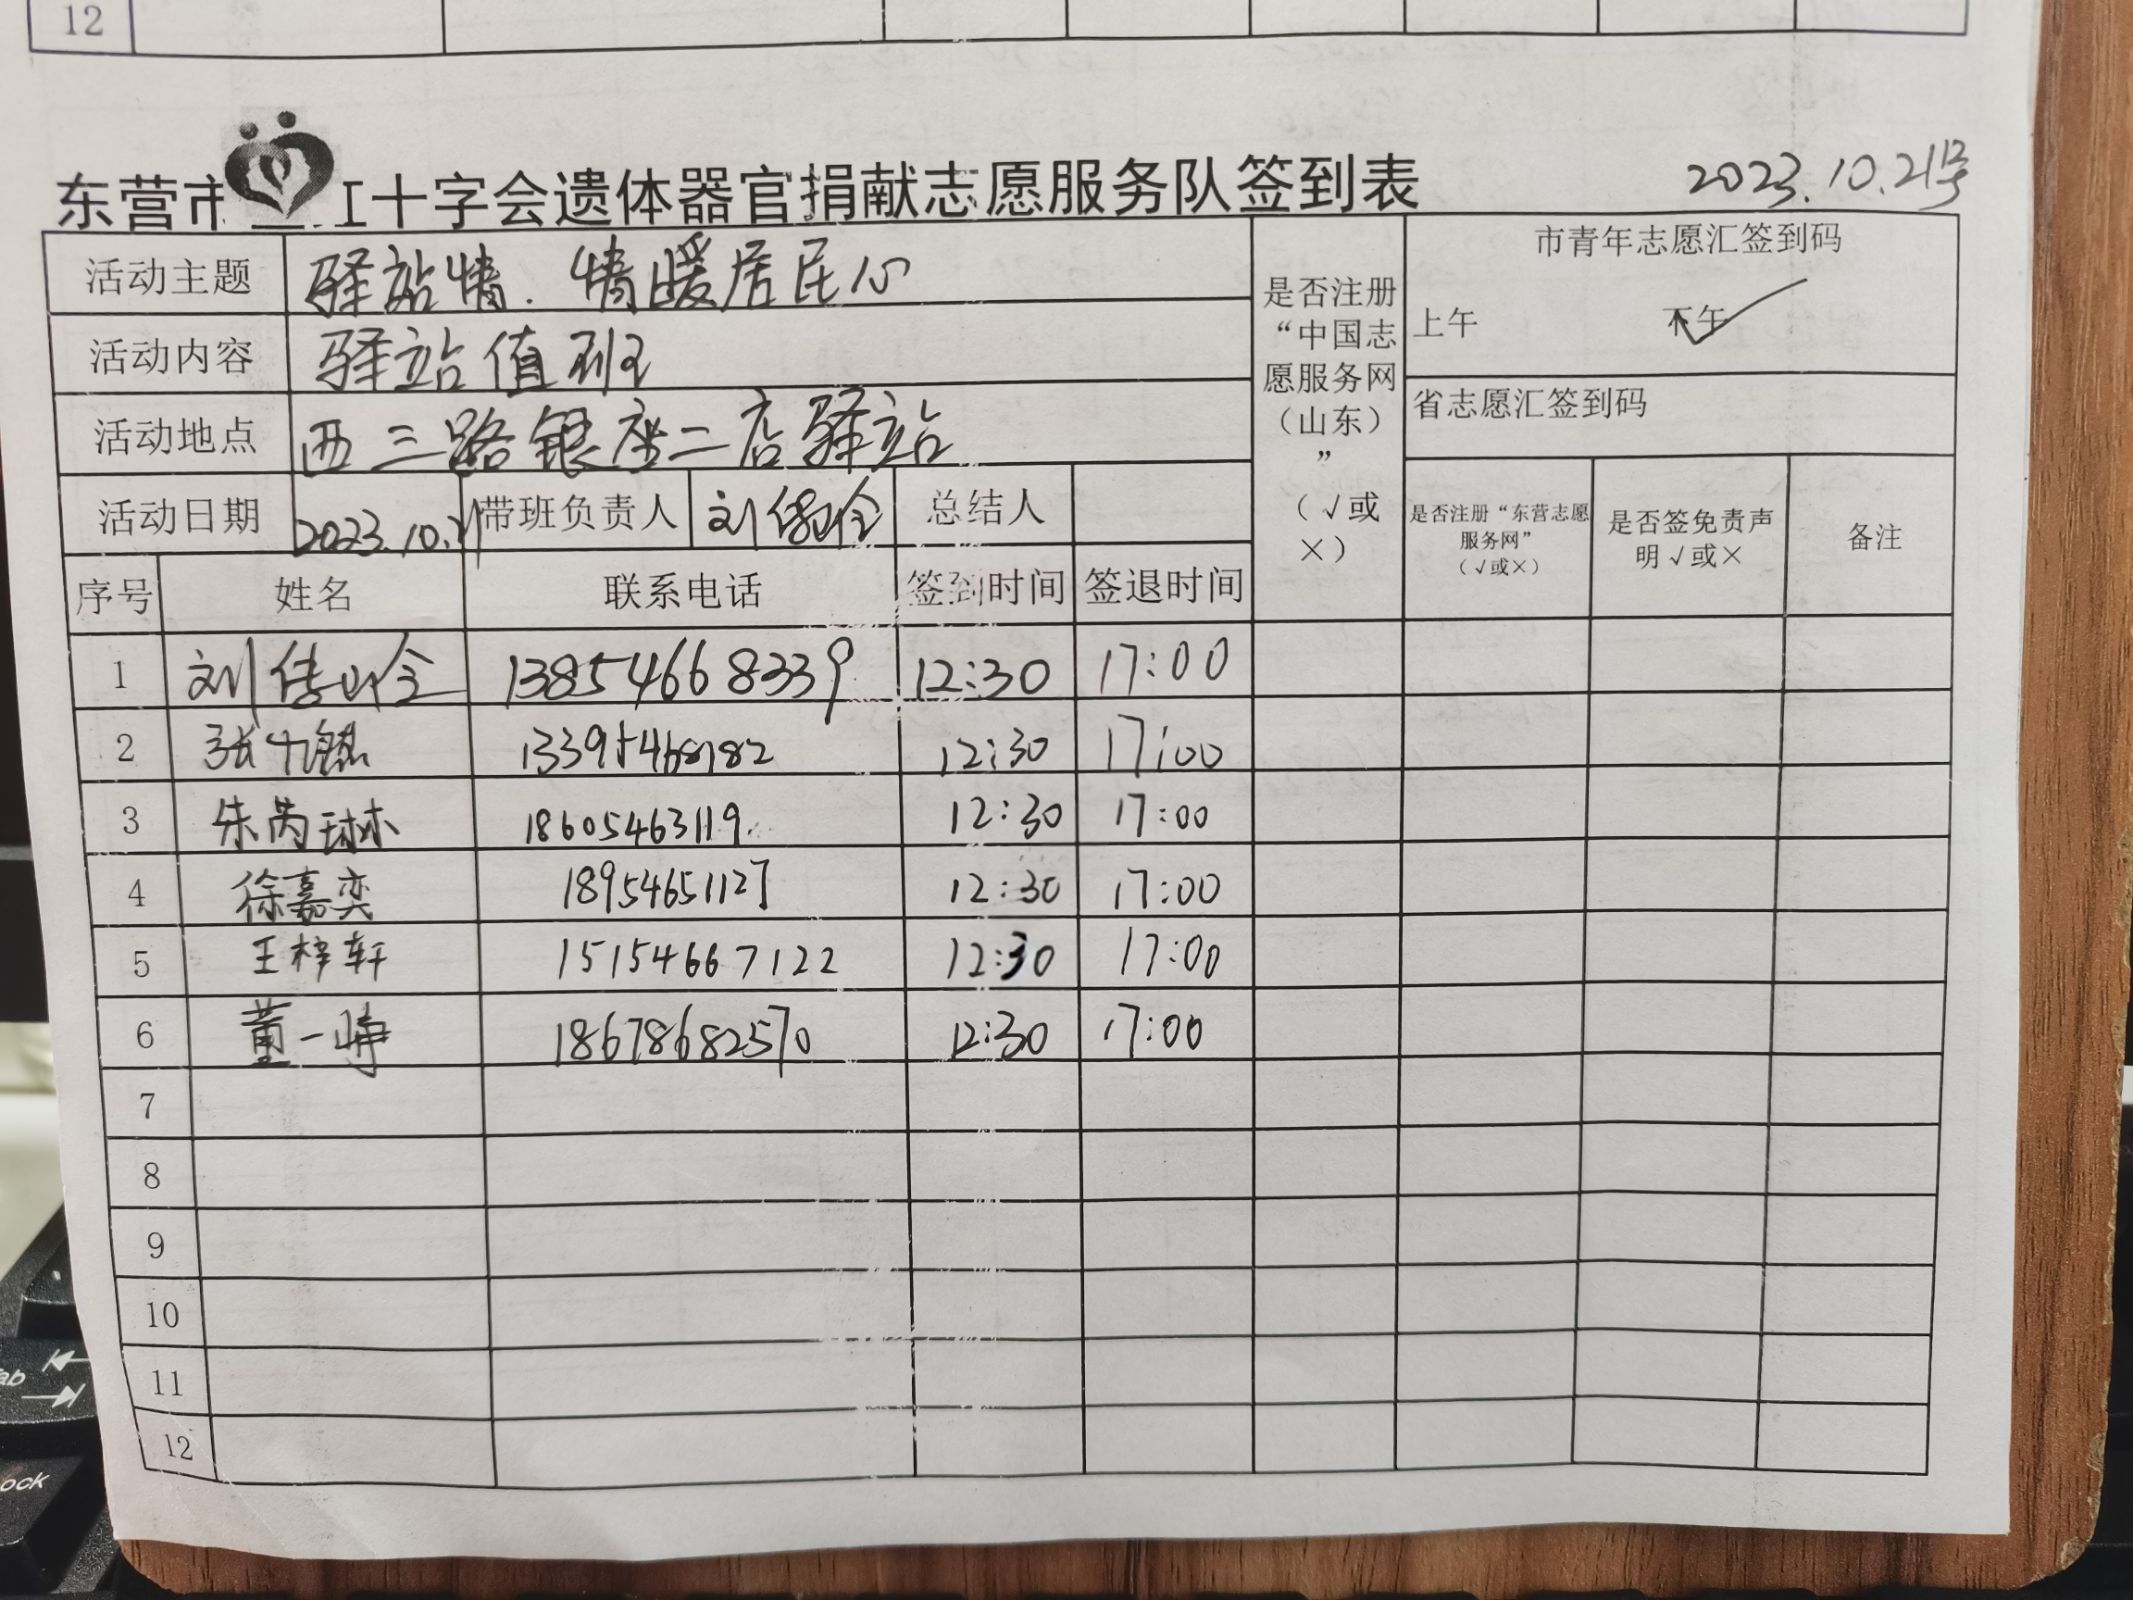 12
东营市 红十字会遗体器官捐献志愿服务队签到表 2023.10.21号
活动主题 驿站情.情暖居民心
活动内容 驿站值班
活动地点 西三路银座二店驿站
活动日期 2023.10.21 带班负责人 总结人
是否注册
“中国志
愿服务网
（山东）
”
（√或
×）
市青年志愿汇签到码
上午 下午 ✓
省志愿汇签到码
是否注册“东营志愿
服务网”
（√或×）
是否签免责声
明√或×
备注
序号 姓名 联系电话 签到时间 签退时间
1 13854668339 12:30 17:00
2 12:30 17:00
3 朱芮琳 18605463119. 12:30 17:00
4 徐嘉奕 18954651127 12:30 17:00
5 王梓轩 15154667122 12:30 17:00
6 董一峥 18678682570 12:30 17:00
7
8
9
10
11
12
ab
ock